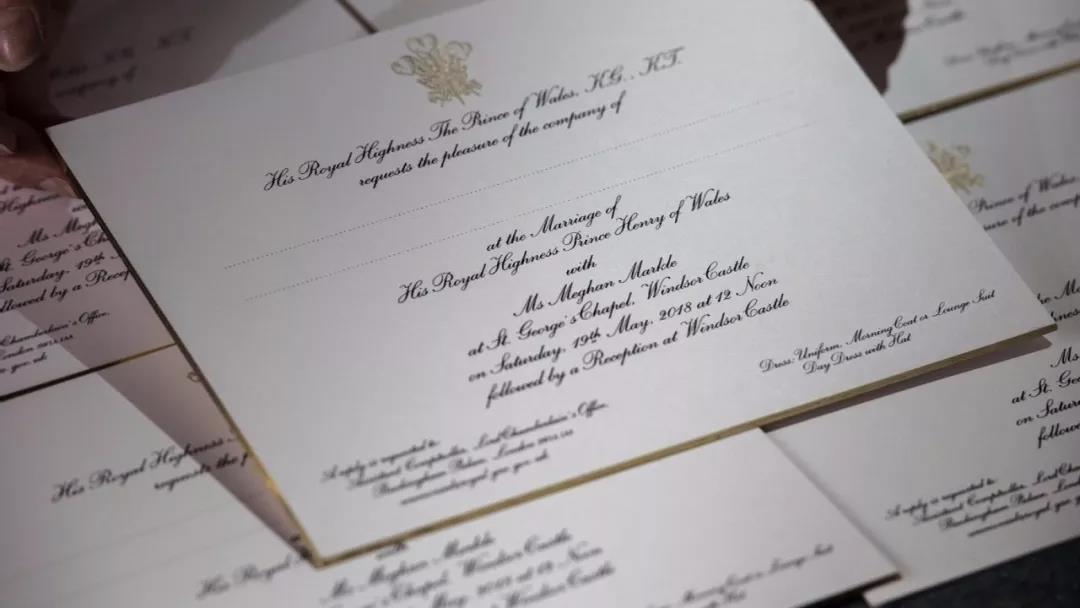 His Royal Highness The Prince of Wales, K.G., K.T.
requests the pleasure of the company of
at the Marriage of
His Royal Highness Prince Henry of Wales
with
Ms Meghan Markle
at St. George's Chapel, Windsor Castle
on Saturday, 19th May, 2018 at 12 Noon
followed by a Reception at Windsor Castle
Dress: Uniform, Morning Coat or Lounge Suit
Day Dress with Hat
A reply is requested to:
Assistant Comptroller, Lord Chamberlain's Office,
Buckingham Palace, London
company of
Highness
Ms Megh
St. George's Cha
Saturday, 19th
followed by a Recep
Chamberlain's Office,
London
His Royal Highness
requests the p
His Royal H
with
Ms Meghan Markle
George's Chapel, Windsor Castle
May,
Windsor Castle
Morning Coat or Lounge Suit
Prince of Wales
of the comp
the Ma
Ms
at St. Geo
on Satur
follow
A reply is requested to:
Assistant Comptroller, Lord Cham
Buckingham Palace, Lond